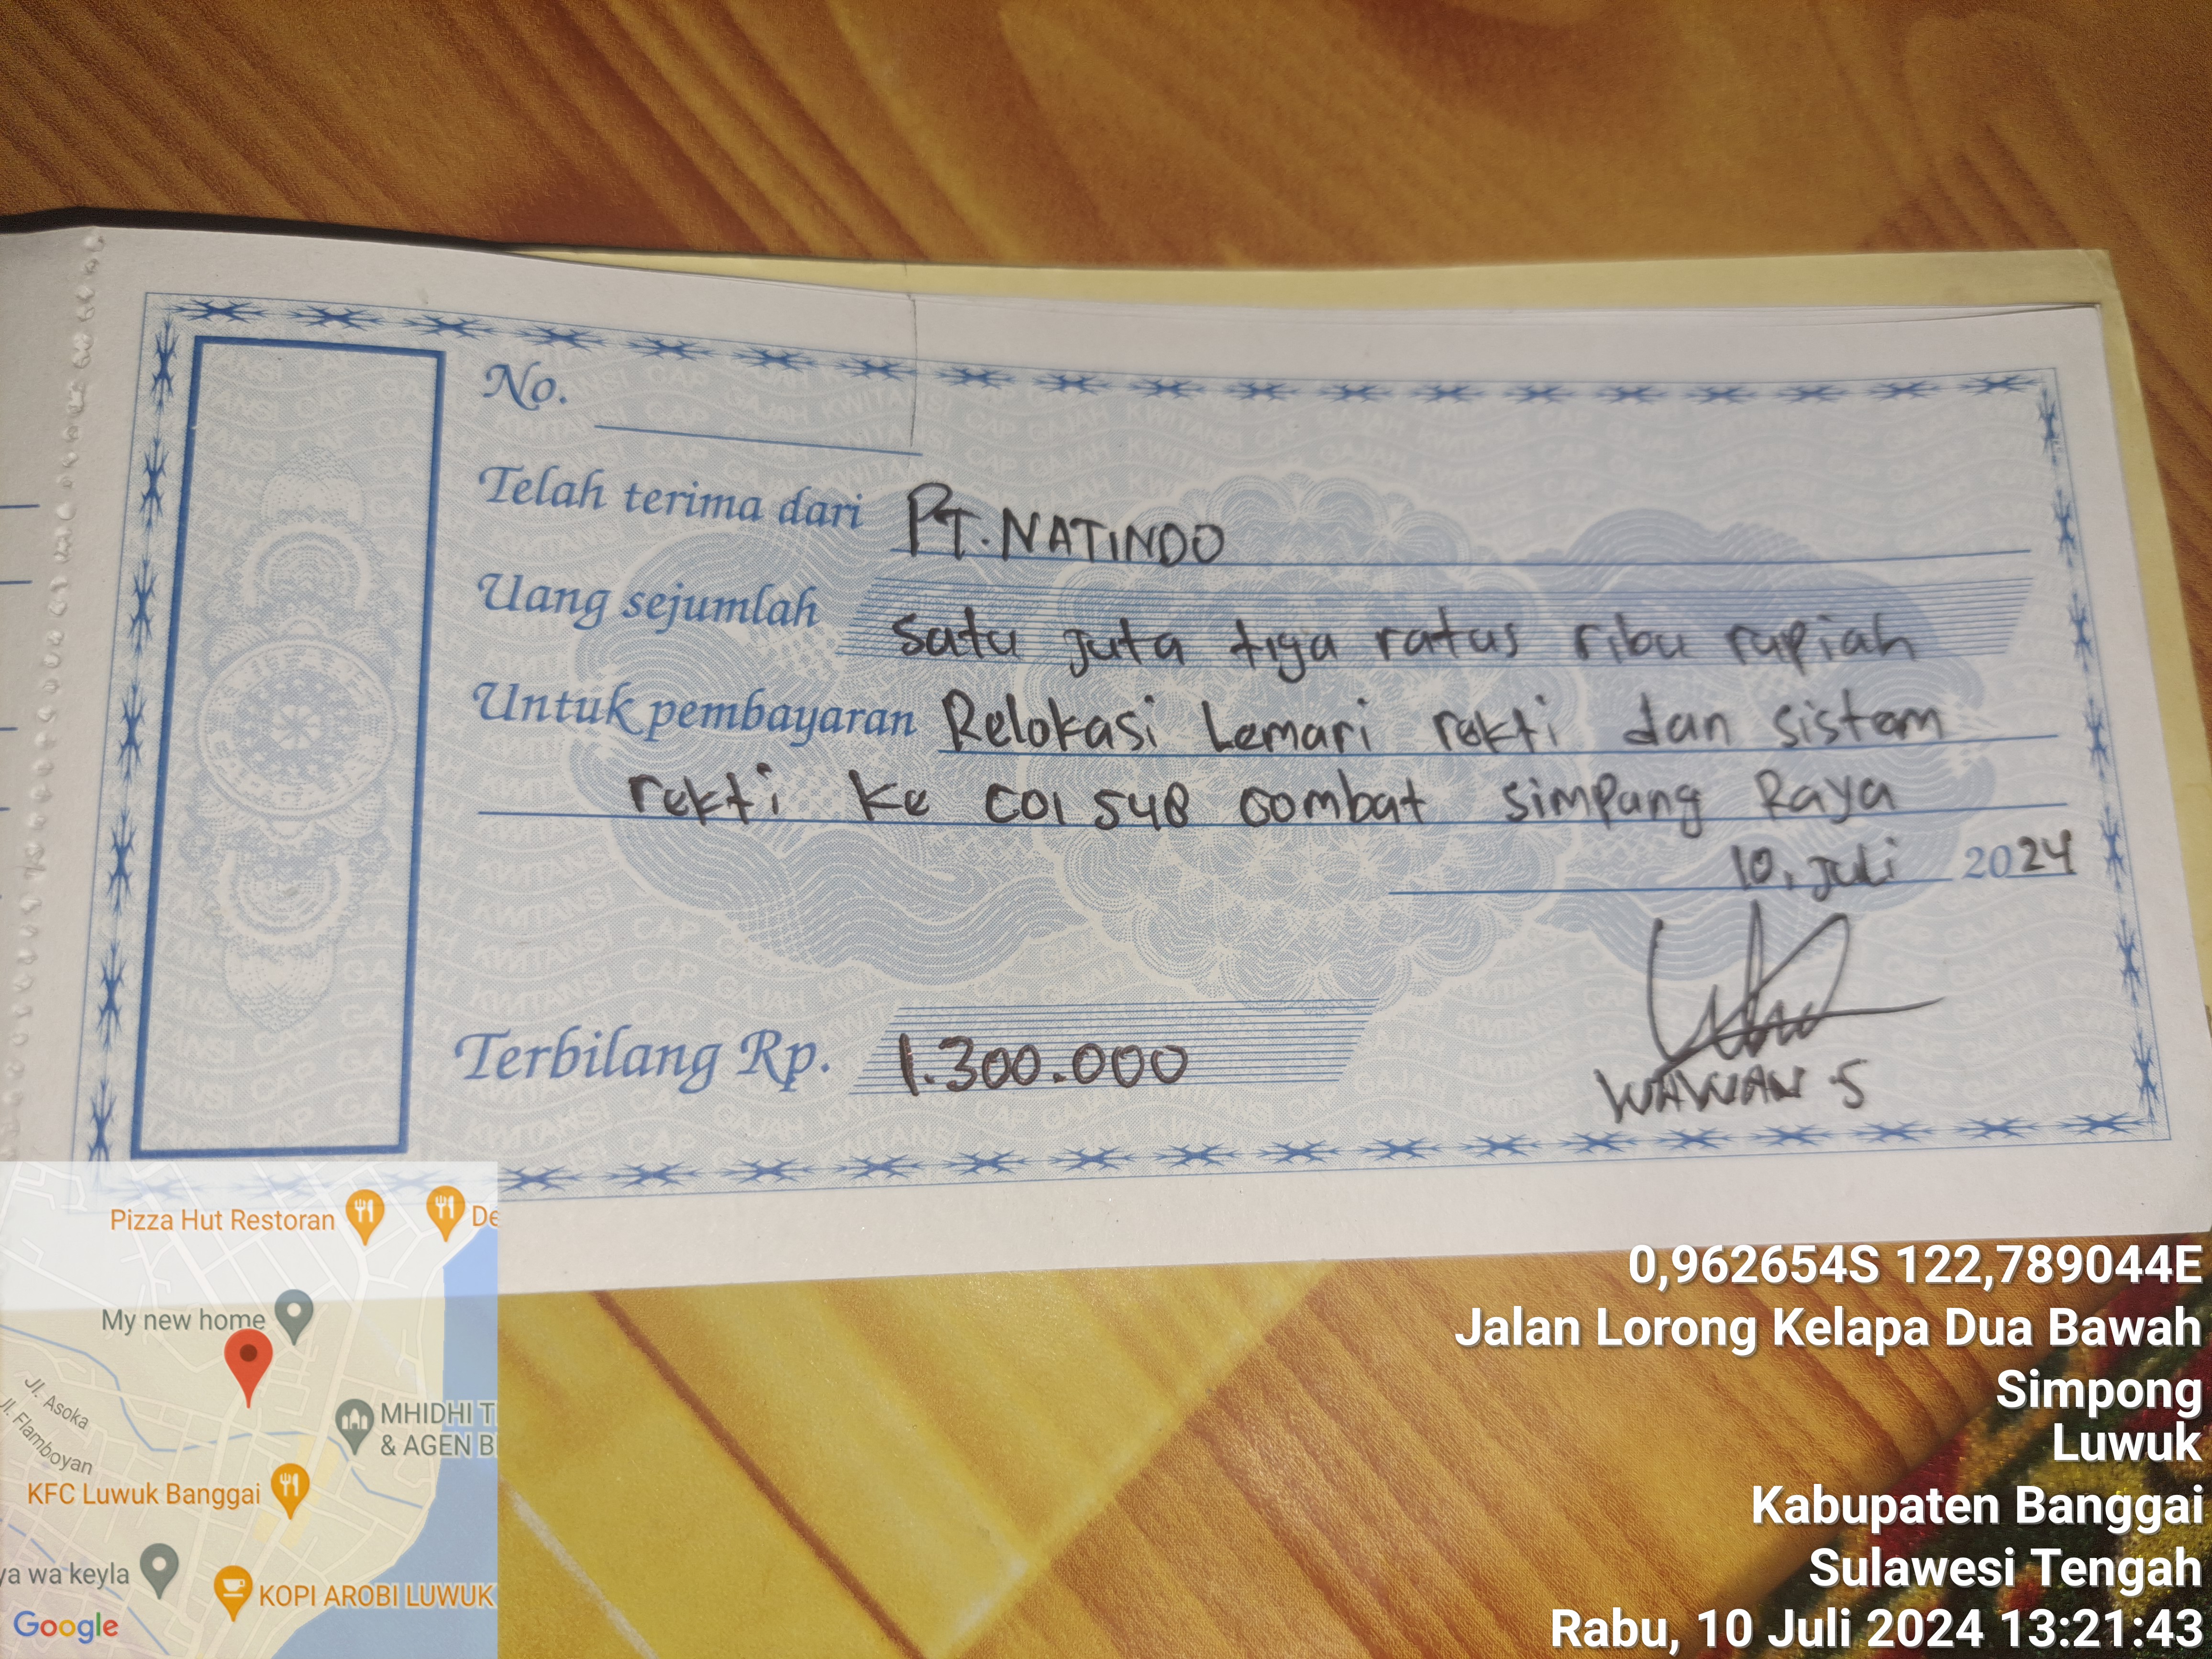 No.
Telah terima dari PT. NATINDO
Uang sejumlah satu juta tiga ratus ribu rupiah
Untuk pembayaran Relokasi Lemari rekti dan sistem
rekti ke COI 548 combat simpang Raya
10, juli 2024
Terbilang Rp. 1.300.000
WAWAN S
Pizza Hut Restoran
De
My new home
Jl. Asoka
Jl. Flamboyan
MHIDHI T
& AGEN B
KFC Luwuk Banggai
ya wa keyla
KOPI AROBI LUWUK
Google
0,962654S 122,789044E
Jalan Lorong Kelapa Dua Bawah
Simpong
Luwuk
Kabupaten Banggai
Sulawesi Tengah
Rabu, 10 Juli 2024 13:21:43